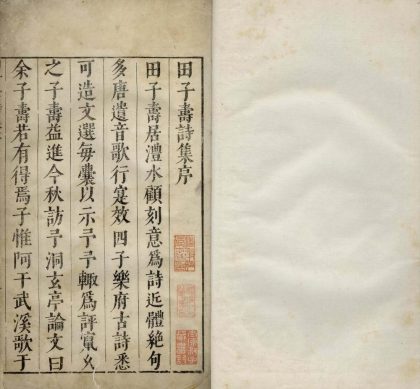 田子壽詩集序
田子壽居澧水顧刻意為詩近體絶句
多唐遺音歌行寔效四子樂府古詩悉
可造文選每囊以示予予輙為評寘以
之子壽益進今秋訪予洞玄亭論文曰
余子壽若有得焉子惟阿干武溪歌于